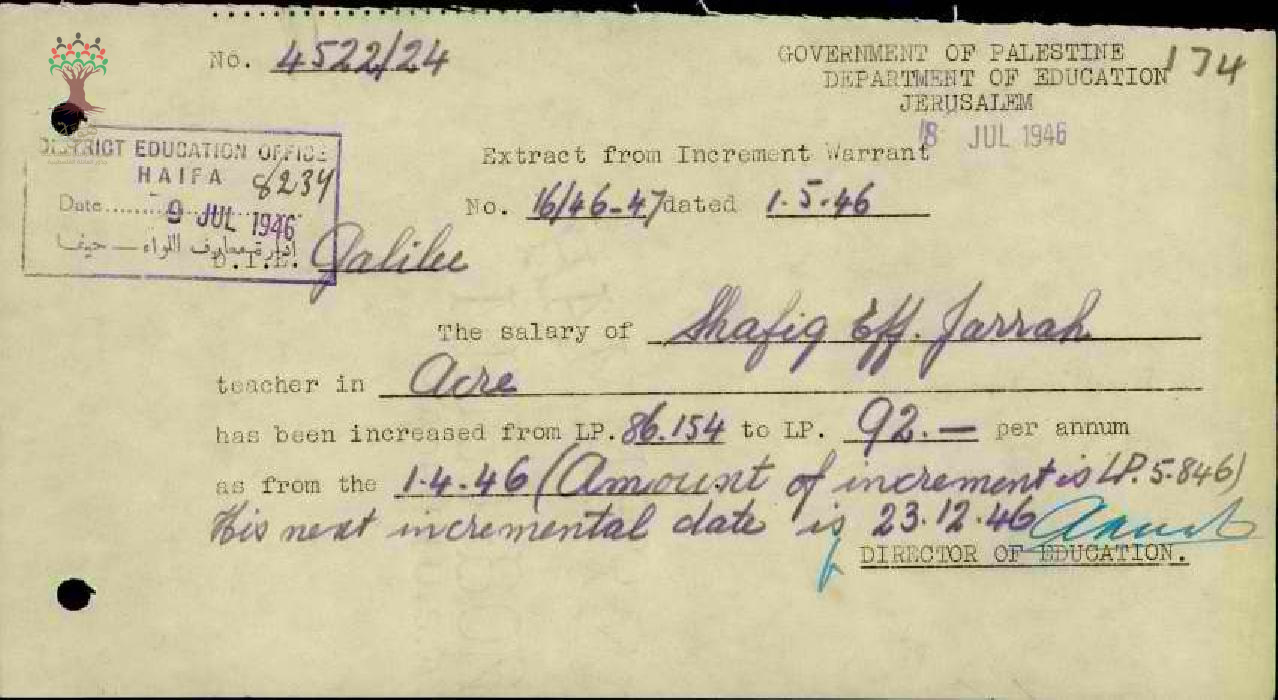 No. 4522/24
GOVERNMENT OF PALESTINE
174
DEPARTMENT OF EDUCATION
JERUSALEM
8 JUL 1946
DISTRICT EDUCATION OFFICE
HAIFA 8234
Date.......... 9 JUL 1946
إدارة معارف اللواء — حيفا
Extract from Increment Warrant
No. 16/46-47 dated 1.5.46
D.I.E. Galilee
The salary of Shafiq Eff. Jarrah
teacher in Acre
has been increased from LP. 86.154 to LP. 92.— per annum
as from the 1.4.46 (Amount of increment is LP. 5.846)
His next incremental date is 23.12.46
f DIRECTOR OF EDUCATION.